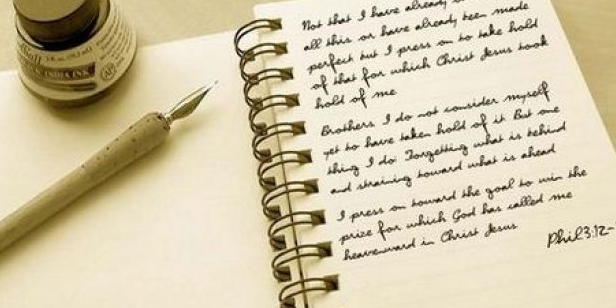 INDIA INK
Not that I have already
all this or have already been made
perfect but I press on to take hold
of that for which Christ Jesus took
hold of me
Brothers I do not consider myself
yet to have taken hold of it But one
thing I do Forgetting what is behind
and straining toward what is ahead
I press on toward the goal to win the
prize for which God has called me
heavenward in Christ Jesus
Phil3:12-